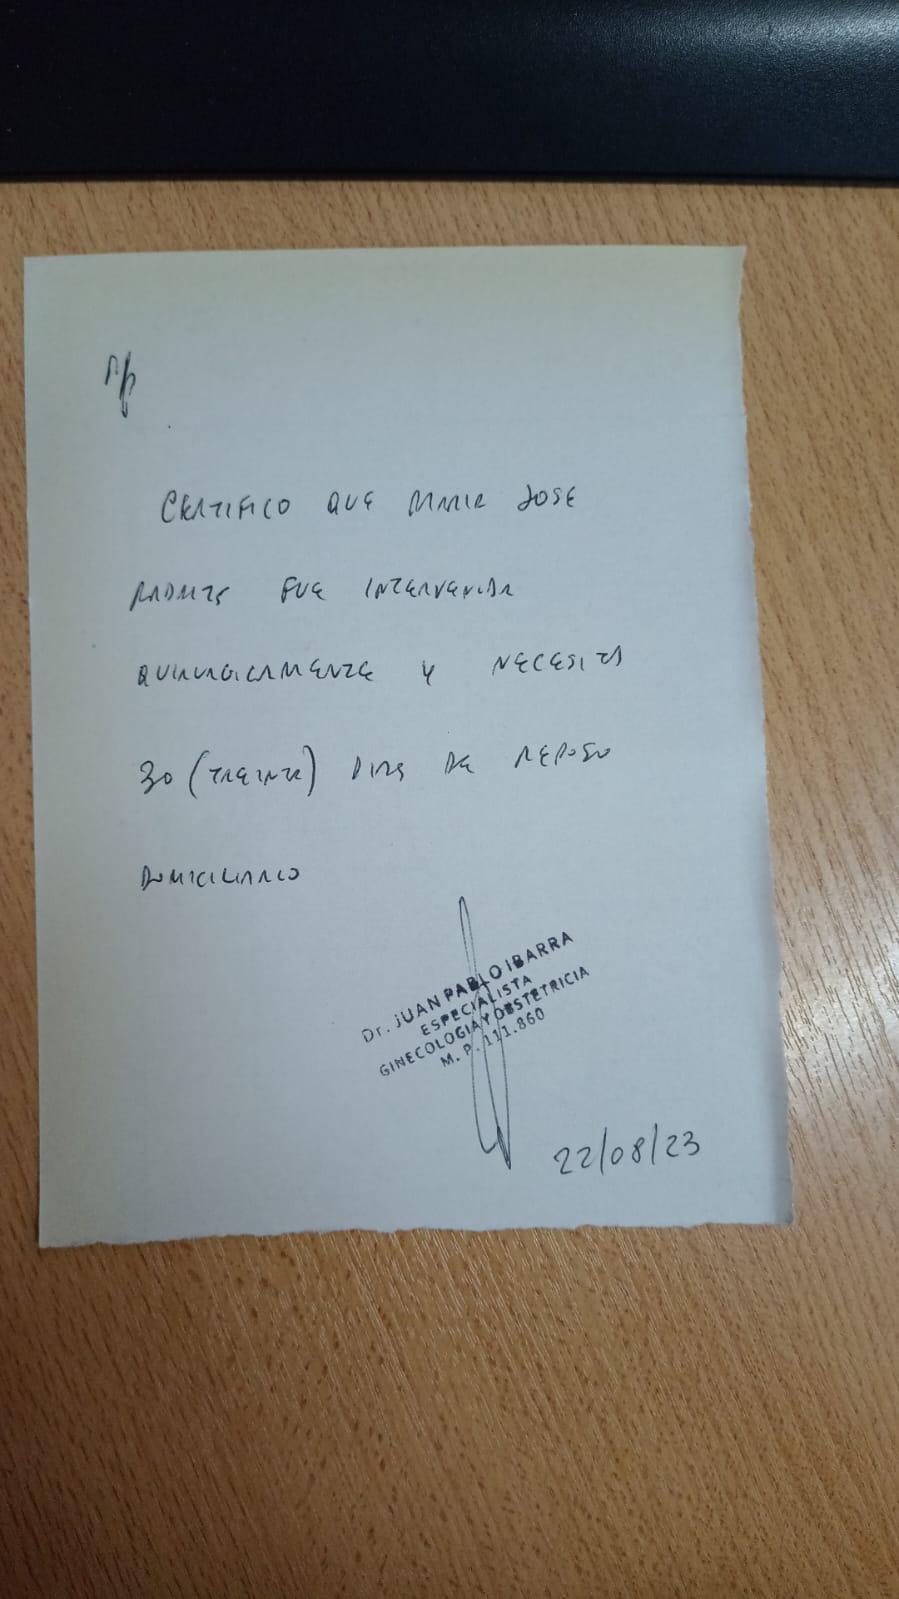 Rp
CERTIFICO QUE MARIA JOSE
FUE INTERVENIDA
QUIRURGICAMENTE Y NECESITA
30 (TREINTA) DIAS DE REPOSO
DOMICILIARIO
Dr. JUAN PABLO IBARRA
ESPECIALISTA
GINECOLOGIA Y OBSTETRICIA
M. P. 111.860
22/08/23